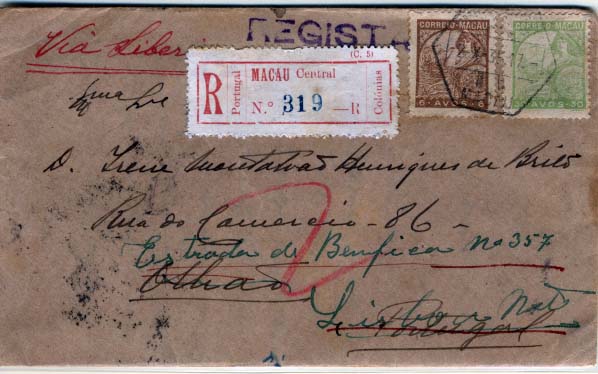 Via Siberia
REGISTA
CORREIO-MACAU
6 AVOS 6
CORREIO-MACAU
AVOS 50
(C. 5)
R
Portugal
MACAU Central
N.º 319 —R
Colónias
D. Irene Montalvão Henriques de Brito
Rua do Comercio - 86 -
Estrada de Benfica Nº 357
Olhão
Lisboa
Portugal